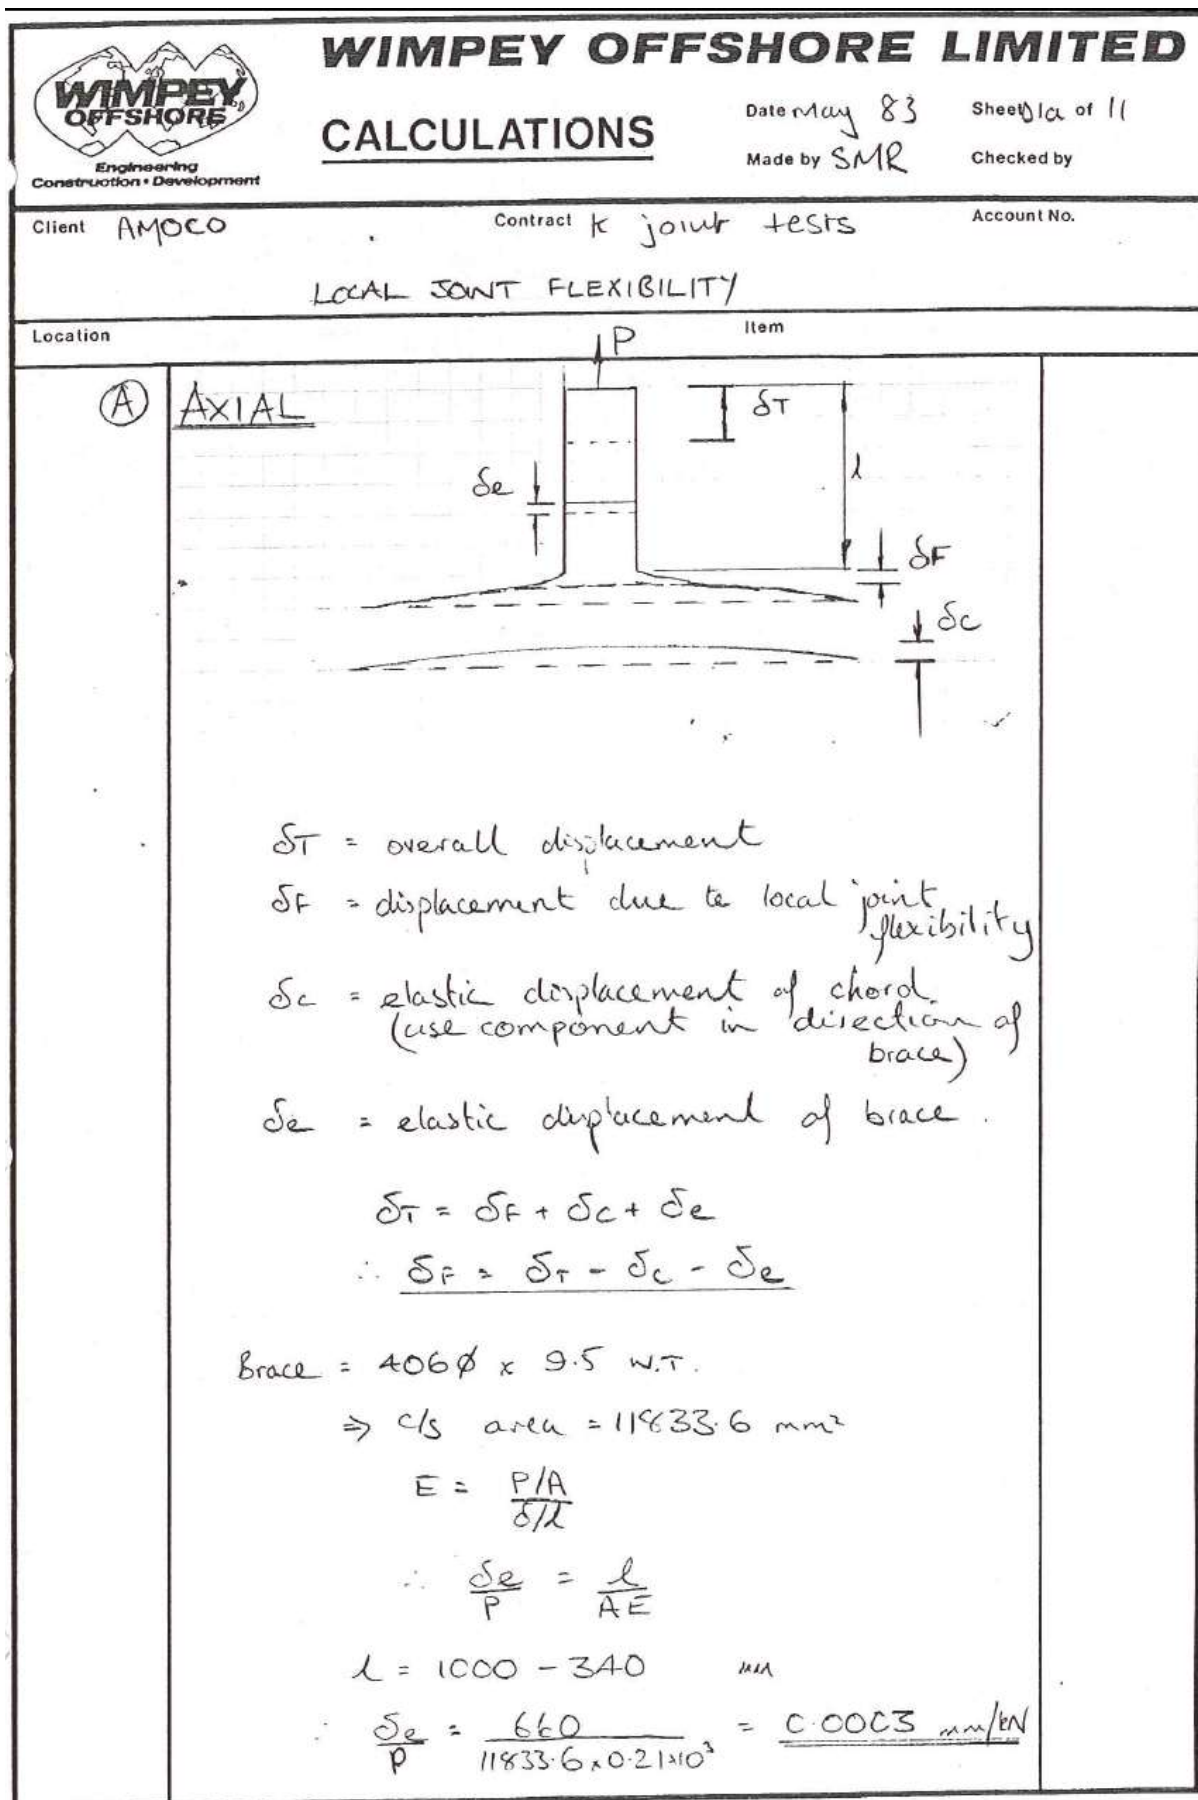 WIMPEY OFFSHORE LIMITED
WIMPEY
OFFSHORE
Engineering
Construction • Development
CALCULATIONS
Date May 83 Sheet D1a of 11
Made by SMR Checked by
Client AMOCO Contract K joint tests Account No.
LOCAL JOINT FLEXIBILITY
Location Item
P
(A) AXIAL
δT
l
δe
δF
δc
δT = overall displacement
δF = displacement due to local joint
flexibility
δc = elastic displacement of chord.
(use component in direction of
brace)
δe = elastic displacement of brace.
δT = δF + δc + δe
∴ δF = δT - δc - δe
Brace = 406ϕ x 9.5 W.T.
⇒ c/s area = 11833.6 mm²
E = P/A / δ/l
∴ δe/P = l/AE
l = 1000 - 340 mm
∴ δe/P = 660 / 11833.6 x 0.21x10³ = 0.0003 mm/kN